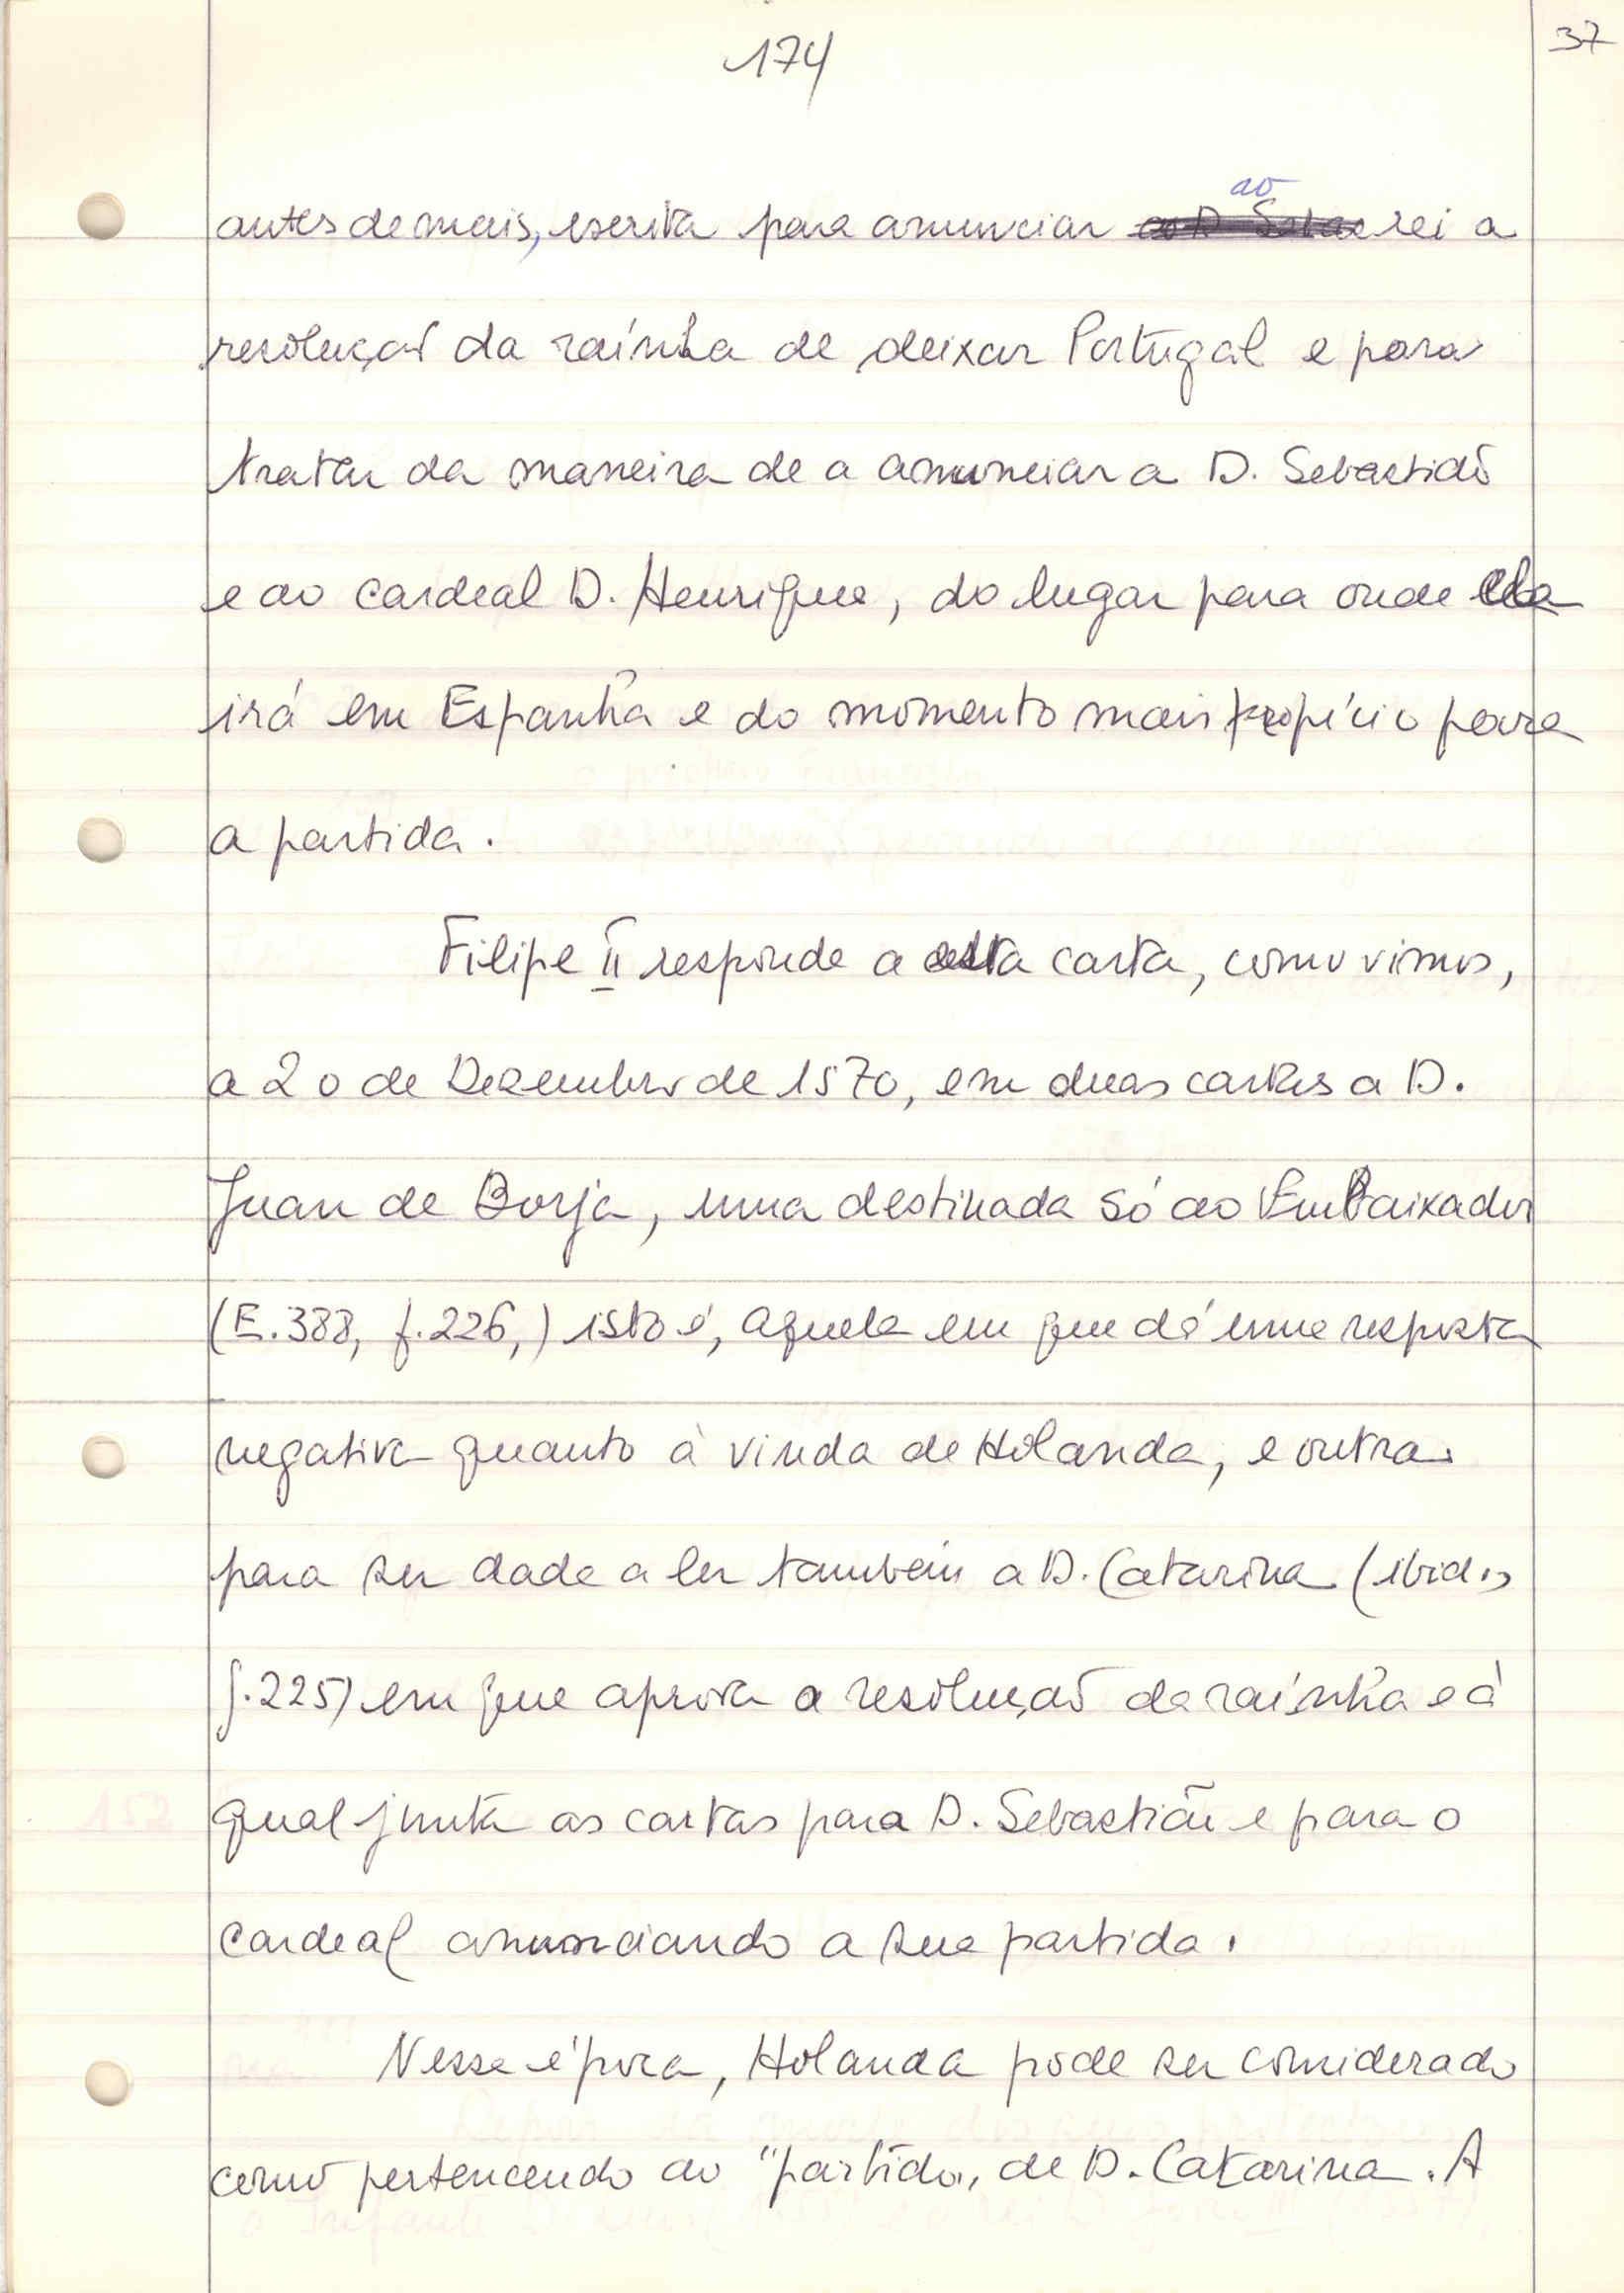 174
37
antes de mais, escrita para anunciar ao rei a
resolução da raínha de deixar Portugal e para
tratar da maneira de a anunciar a D. Sebastião
e ao cardeal D. Henrique, do lugar para onde ela
irá em Espanha e do momento mais propício para
a partida.
Filipe II responde a esta carta, como vimos,
a 20 de Dezembro de 1570, em duas cartas a D.
Juan de Borja, uma destinada só ao Embaixador
(E. 388, f. 226,) isto é, aquela em que dá uma resposta
negativa quanto à vinda de Holanda, e outra
para ser dada a ler também a D. Catarina (ibid.,
f. 225) em que aprova a resolução da raínha e à
qual junta as cartas para D. Sebastião e para o
cardeal anunciando a sua partida.
Nessa época, Holanda pode ser considerado
como pertencendo ao "partido" de D. Catarina. A